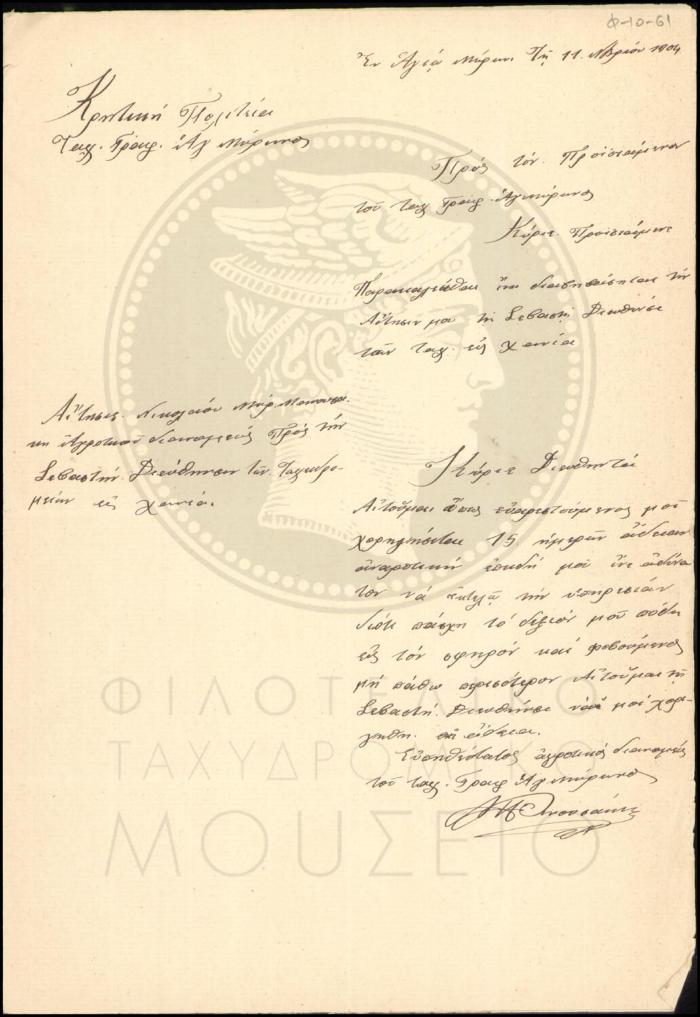 Φ-10-61
Ἐν Ἁγίῳ Μύρωνι τῇ 11 1904
Κρητική Πολιτεία
Ταχ. Γραφ. Ἁγ Μύρωνος
Πρός τόν Προϊστάμενον
τοῦ ταχ Γραφ. Ἁγ Μύρωνος
Κύριε Προϊστάμενε
Παρακαλεῖσθαι τήν
Αἴτησιν μου τῇ Σεβαστῇ Διευθήνσε
τῶν ταχ. εἰς χανία
Αἴτησις Νικολάου Μύρ
κη Ἀγροτικοῦ διανομέως Πρός τήν
Σεβαστήν Διεύθηνσιν τῶν Ταχυδρο
μείων εἰς χανία.
Κύριε Διευθηντά
Αἰτοῦμαι ὅπως εὐαρεστούμενος μοῦ
χορηγήσεται 15 ἡμερῶν ἄδειαν
ἀναροτικήν ἐπιδή μοί ἶνε ἀδύνα
τον νά ἐκτελῶ τήν ὑπηρεσίαν
διότι πάσχη τό δεξιόν μου πόδι
εἰς τόν σφηρόν καί φοβούμενος
μή πάθω περισότερον Αἰτοῦμαι τῇ
Σεβαστῇ Διευθήνσε νά μοί χορι
γηθη ἄδεια.
Εὐπηθέστατος ἀγροτικός διανομεύς
τοῦ ταχ. Γραφ Ἁγ Μύρωνος
ΦΙΛΟΤΕΛΙΚΟ
ΤΑΧΥΔΡΟΜΙΚΟ
ΜΟΥΣΕΙΟ